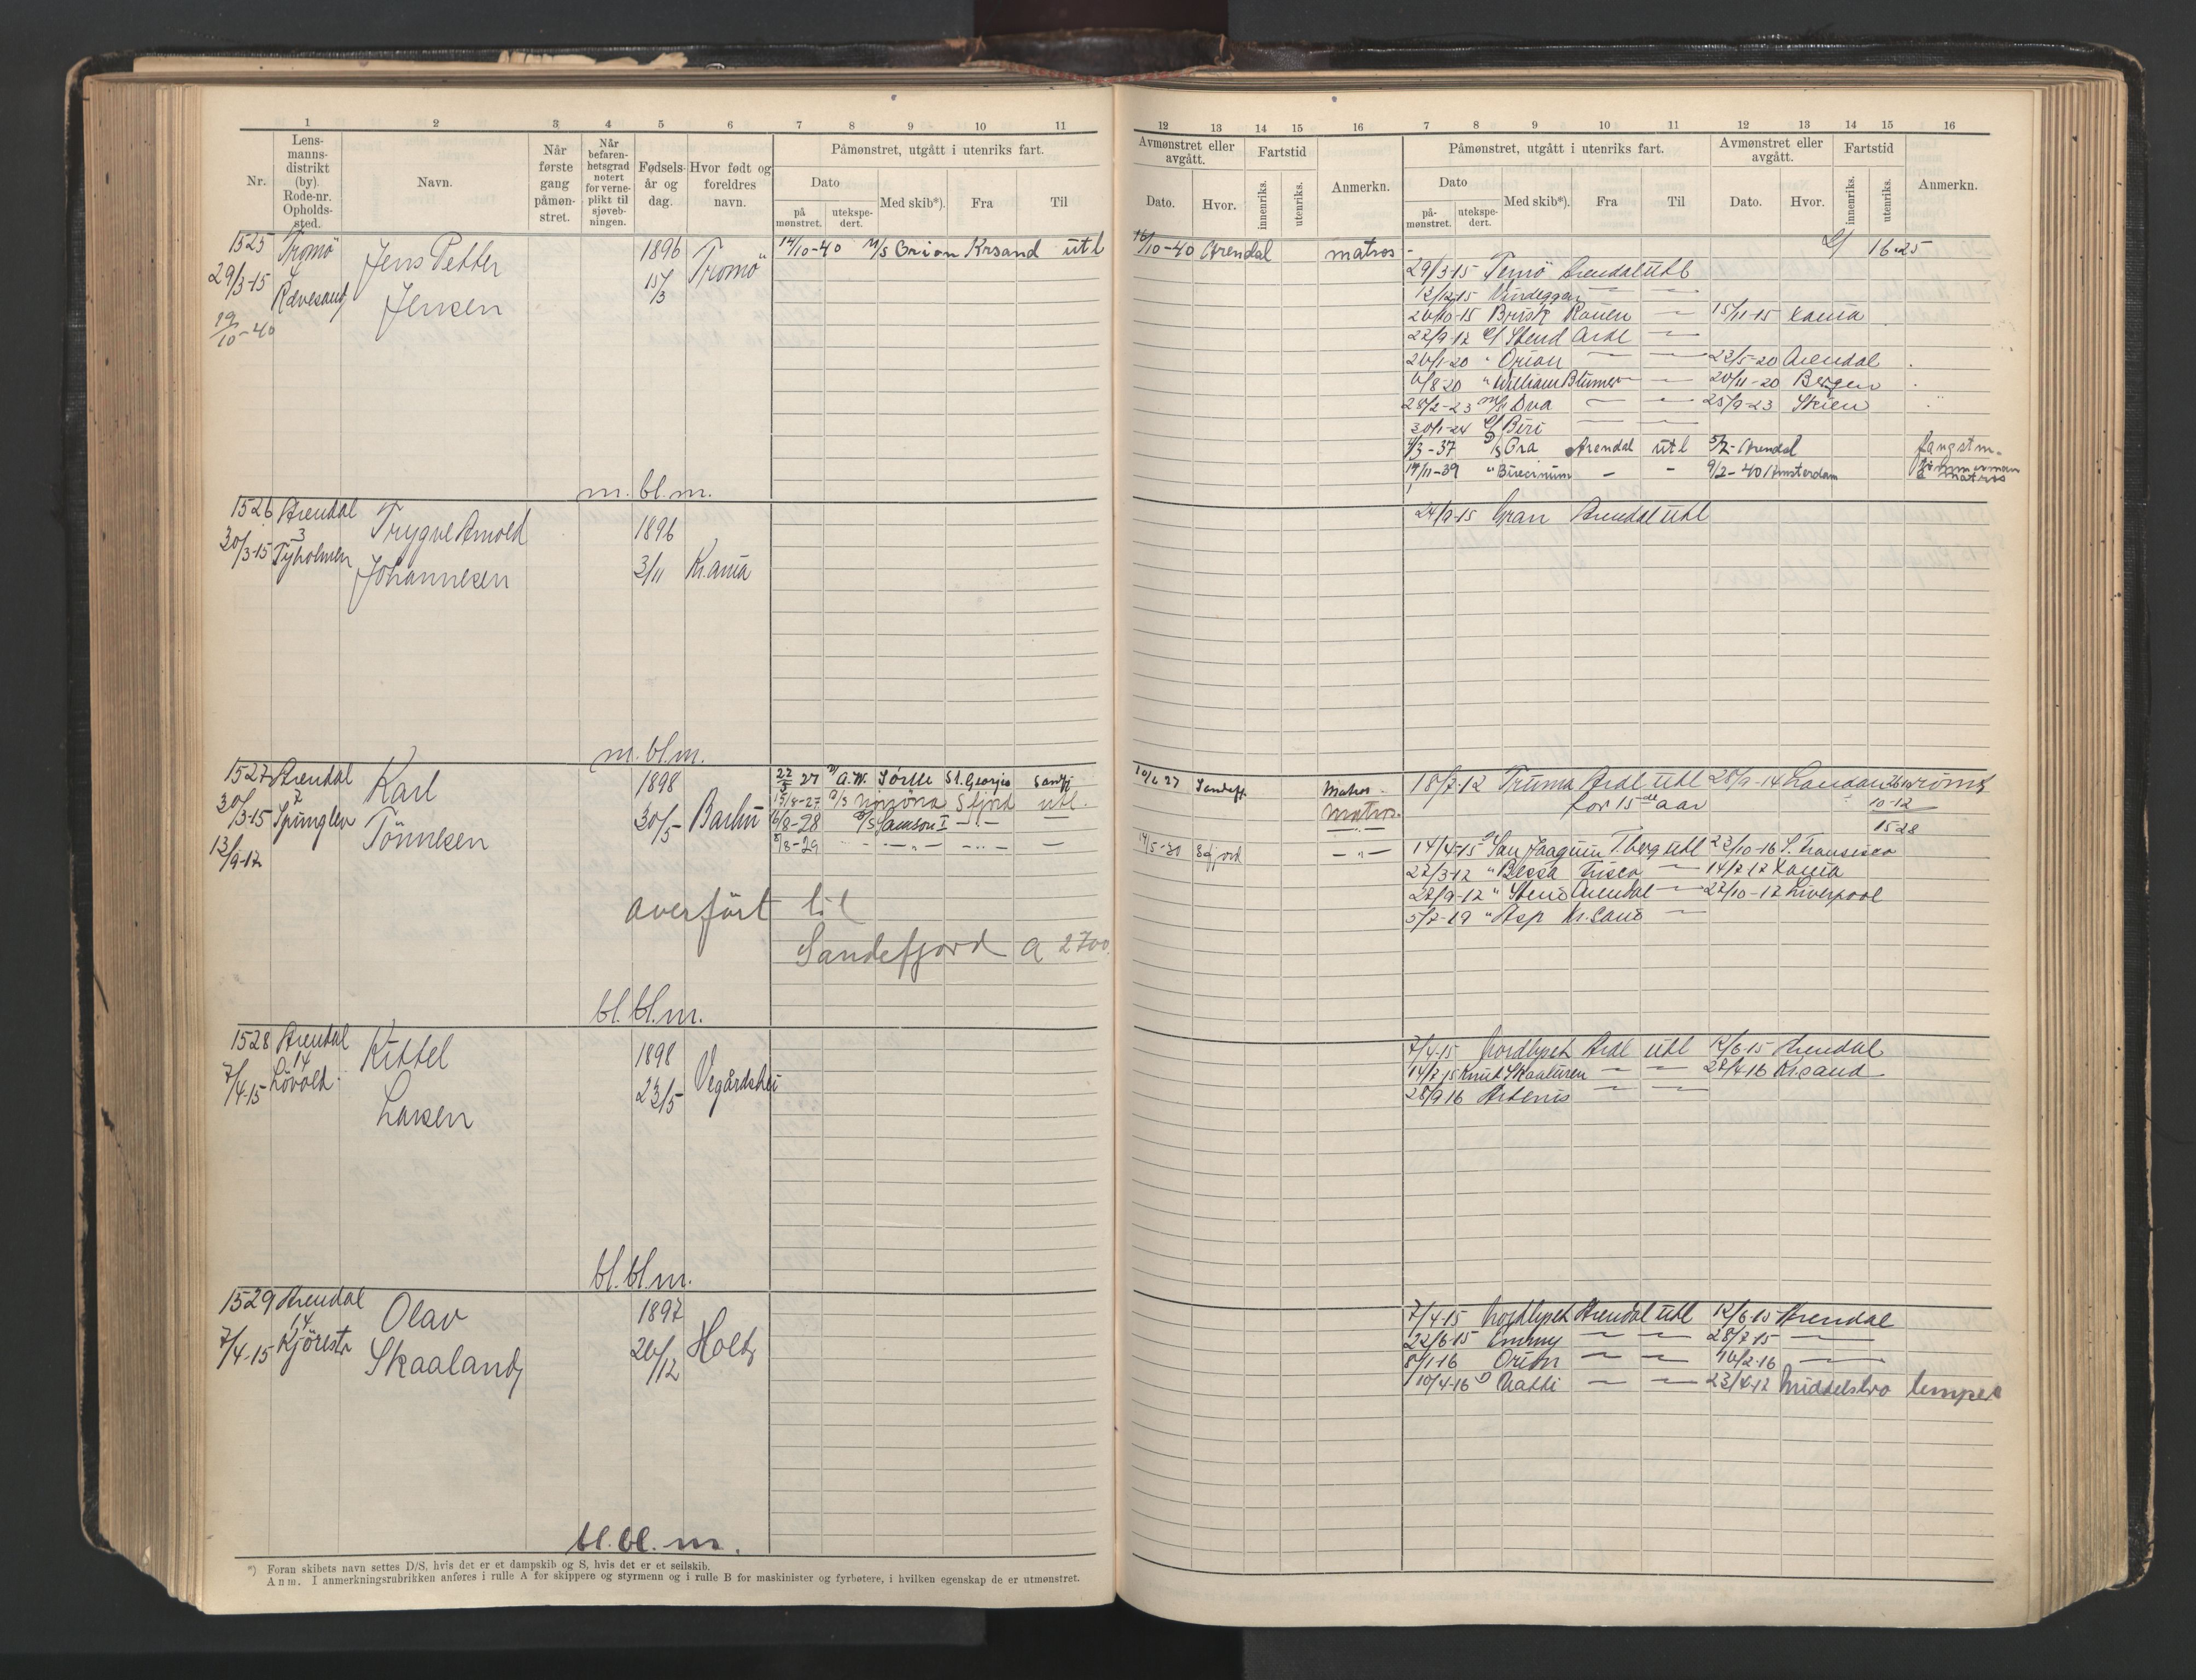 1 2 3 4 5 6 7 8 9 10 11
Nr.
Lens-
manns-
distrikt
(by).
Rode-nr.
Opholds-
sted.
Navn.
Når
første
gang
påmøn-
stret.
Når
befaren-
hetsgrad
notert
for verne-
plikt til
sjøveb-
ningen.
Fødsels-
år og
dag.
Hvor født og
foreldres
navn.
Påmønstret, utgått i utenriks fart.
Dato
på
mønstret.
utekspe-
dert.
Med skib*).
Fra
Til
1525 Tromö Jens Petter 1896 Tromö 14/10-40 M/S Orion Krsand utl
29/3-15 4 15/3
Revesand Jensen
19/10-40
m. bl. m.
1526 Arendal Trygve Arnold 1896
30/3-15 3 Tyholmen Johannesen 3/11 Kr.ania
m. bl. m.
1527 Arendal Karl 1898 22/5 27 A.W. Sörlle St. Georgia Sandfj
30/3-15 2 Spinglen Tönnesen 30/5 Barbu 15/8-27 Sfjord utl.
13/9-17 6/8-28 Samson I
5/8-29
overfört til
Sandefjord a 2700.
bl. bl. m.
1528 Arendal Kittel 1898 Vegårdshei
7/4-15 14 Lövold. Larsen 23/5
bl. bl. m.
1529 Arendal Olav 1897 Holt
7/4-15 14 Skaaland 26/12
bl. bl. m.
*) Foran skibets navn settes D/S, hvis det er et dampskib og S, hvis det er et seilskib.
Anm. I anmerkningsrubrikken anføres i rulle A for skippere og styrmenn og i rulle B for maskinister og fyrbøtere, i hvilken egenskap de er utmønstret.
12 13 14 15 16 7 8 9 10 11 12 13 14 15 16
Avmønstret eller
avgått.
Dato.
Hvor.
Fartstid
innenriks.
utenriks.
Anmerkn.
Påmønstret, utgått i utenriks fart.
Dato
på-
mønstret.
utekspe-
dert.
Med skib*).
Fra
Til
Avmønstret eller
avgått.
Dato.
Hvor.
Fartstid
innenriks.
utenriks.
Anmerkn.
16/10-40 Arendal matros 16-25
29/3-15 Temö Arendal utl
12/12-15 Vindeggen
26/10-15 Brisk Rouen — 15/11-15 Kania
22/9-17 Stend Ardl —
26/1-20 " Orion — — 22/5-20 Arendal
6/8-20 " William Blumer — 20/11-20 Bergen
28/2-23 Dua — — 25/9-23 Skien
30/1-24 Biri
4/3-37 Ora Arendal utl 5/7- Arendal fangstm.
14/11-39 " - - 9/2-40 Amsterdam matros
24/9-15 Gran Arendal utl
10/6 27 Sandefj. Matros 18/7-12 Truma Ardl utl 28/9-14 London
matros for 15 aar 10-12
15-28
14/5-30 Sfjord — " — 14/4-15 San Joaquin T.berg utl 23/10-16 S. Fransisco
22/3-17 " Bessa Frisco — 14/7-17 Kania
22/9-17 " Stend Arendal — 22/10-17 Liverpool
5/7-19 " Asp Kr.sand —
7/4-15 Nordlyset Ardl utl 12/6-15 Arendal
14/7-15 Knut Skaaluren — — 27/4-16 Kr.sand
28/9-16 Artemis — —
7/4-15 Nordlyset Arendal utl 12/6-15 Arendal
22/6-15 Emmy — — 28/7-15 —
8/1-16 Orion — — 16/2-16 —
10/4-16 Natti — — 23/4-17 Middelsbro